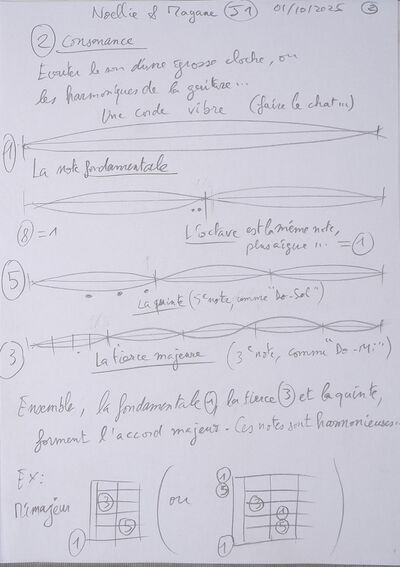 Noellie & Magane S1 01/10/2025 3
2 Consonance
Ecouter le son d'une grosse cloche, ou
les harmoniques de la guitare...
Une corde vibre (faire le chat...)
1
La note fondamentale
8 = 1 L'octave est la même note,
plus aigüe... = 1
5
La quinte (5e note, comme "Do-Sol")
3
La tierce majeure (3e note, comme "Do-Mi")
Ensemble, la fondamentale 1, la tierce 3 et la quinte,
forment l'accord majeur. Ces notes sont harmonieuses...
Ex:
Mi majeur 1 3 5 (ou 1 5 3 1 5 1)